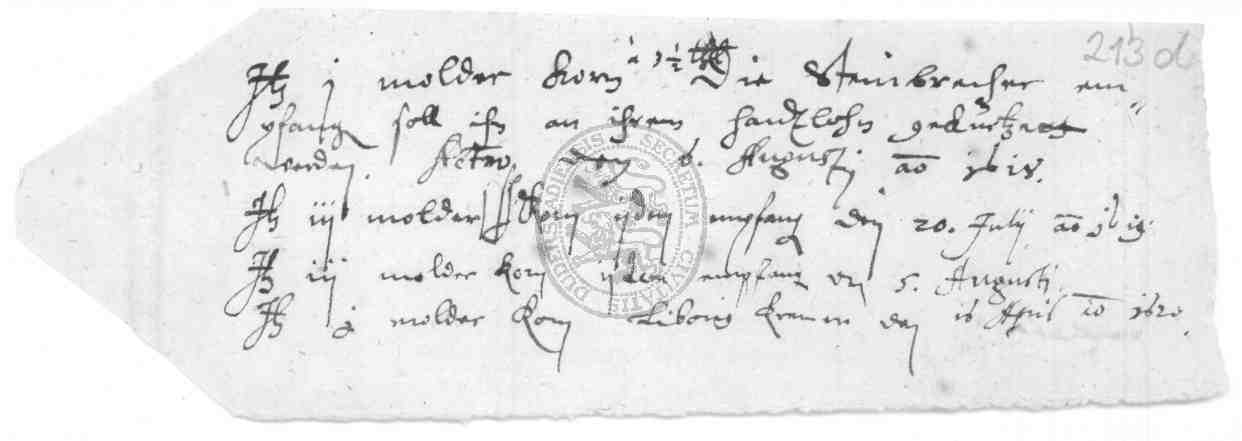 213 d
Itz j molder Korn à 3½ die Steinbrecher em=
pfang soll ihn an ihrem handtlohn gekürtzet
werden. Actum den 6. Augusti ao 1618.
Itz iij molder Korn iidem empfang den 20. Julij ao 1619.
Itz iij molder Korn iidem empfang den 5. Augusti
Itz j molder Korn den 16 Apris ao 1620.
DUDERSTADIENSIS SECRETUM CIVITATIS